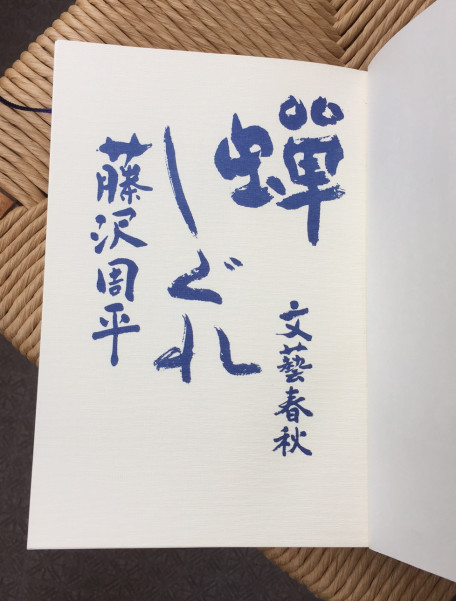 蟬
しぐれ
文藝春秋
藤沢周平